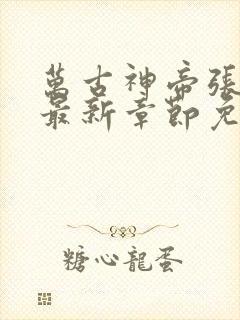 萬古神帝張
最新章節免
糖心龍蛋